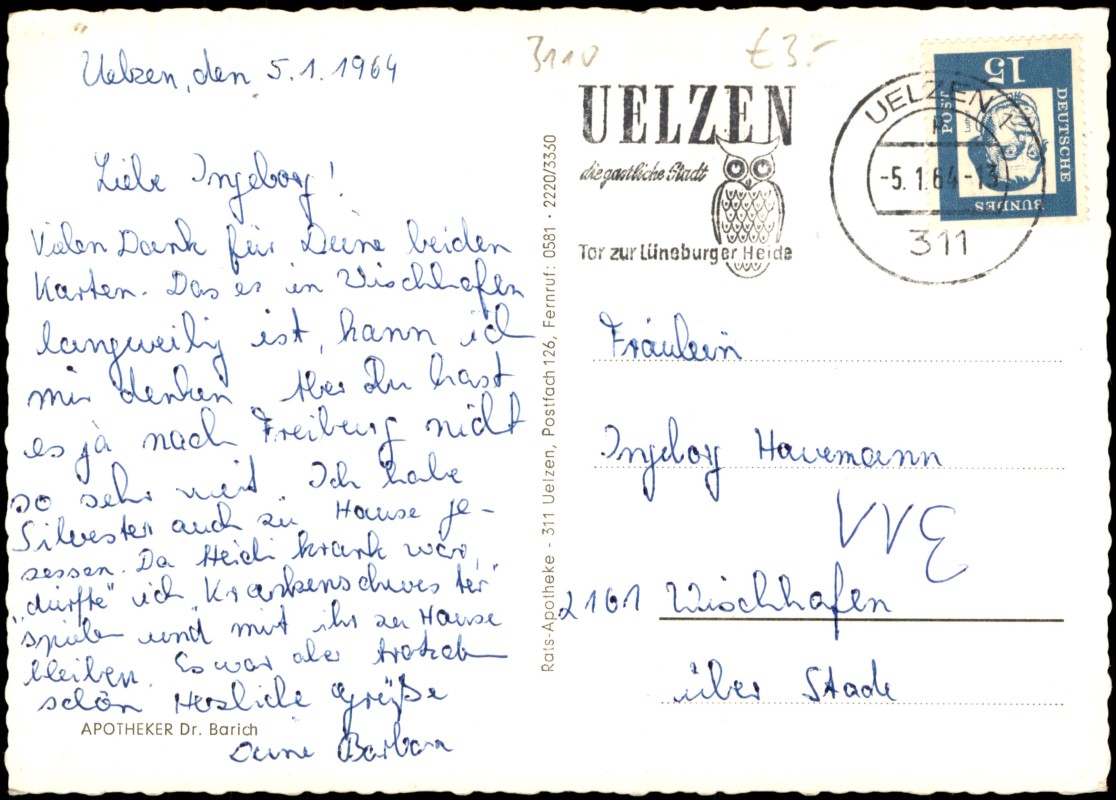 Uelzen, den 5.1.1964
Liebe Ingeborg!
Vielen Dank für Deine beiden
Karten. Das es in Wischhafen
langweilig ist, kann ich
mir denken. Aber Du hast
es ja nach Freiburg nicht
so sehr weit. Ich habe
Silvester auch zu Hause ge-
sessen. Da Heidi krank war,
"dürfte" ich "Krankenschwester"
spielen und mit ihr zu Hause
bleiben. Es war aber trotzdem
schön. Herzliche Grüße
Deine Barbara
APOTHEKER Dr. Barich
Rats-Apotheke - 311 Uelzen, Postfach 126, Fernruf: 0581 · 2220/3330
3110
€ 3.-
UELZEN
die gastliche Stadt
Tor zur Lüneburger Heide
UELZEN 1
-5.1.64-13
311
15
DEUTSCHE
BUNDES
POST
Fräulein
Ingeborg Havemann
VVE
2161 Wischhafen
über Stade